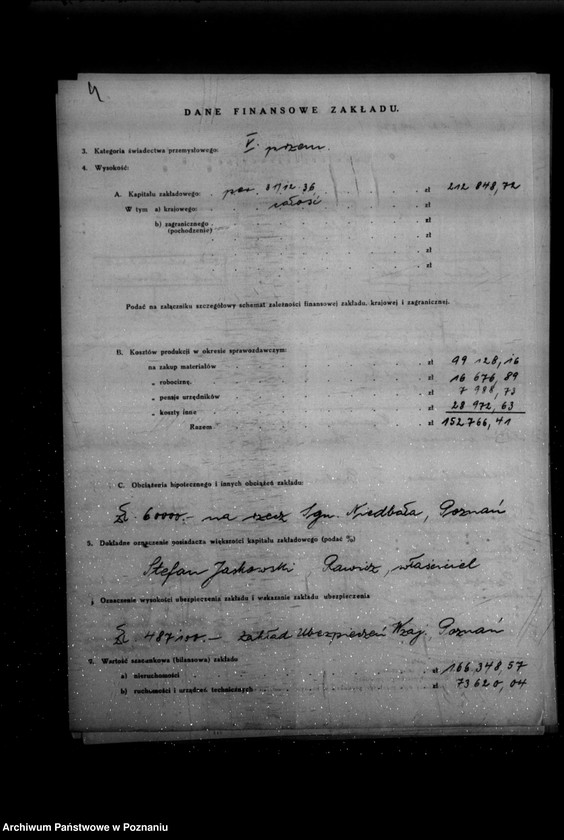 4
DANE FINANSOWE ZAKŁADU.
3. Kategoria świadectwa przemysłowego: V. przem.
4. Wysokość:
A. Kapitału zakładowego: 31/12.36 zł 212 848,72
W tym a) krajowego: całość zł
b) zagranicznego zł
(pochodzenie)
zł
zł
Podać na załączniku szczegółowy schemat zależności finansowej zakładu, krajowej i zagranicznej.
B. Kosztów produkcji w okresie sprawozdawczym:
na zakup materiałów zł 99 128,16
„ robociznę zł 16 676,89
„ pensje urzędników zł 7 988,73
„ koszty inne zł 28 972,63
Razem zł 152 766,41
C. Obciążenia hipotecznego i innych obciążeń zakładu:
Zł 60000.- na rzecz Ign. Niedbała, Poznań
5. Dokładne oznaczenie posiadacza większości kapitału zakładowego (podać %)
Stefan Jaskowski Rawicz, właściciel
Oznaczenie wysokości ubezpieczenia zakładu i wskazanie zakładu ubezpieczenia
Zł 487100.- Zakład Ubezpieczeń Wzaj. Poznań
7. Wartość szacunkowa (bilansowa) zakładu
a) nieruchomości zł 166 348,57
b) ruchomości i urządzeń technicznych zł 73620,04
Archiwum Państwowe w Poznaniu